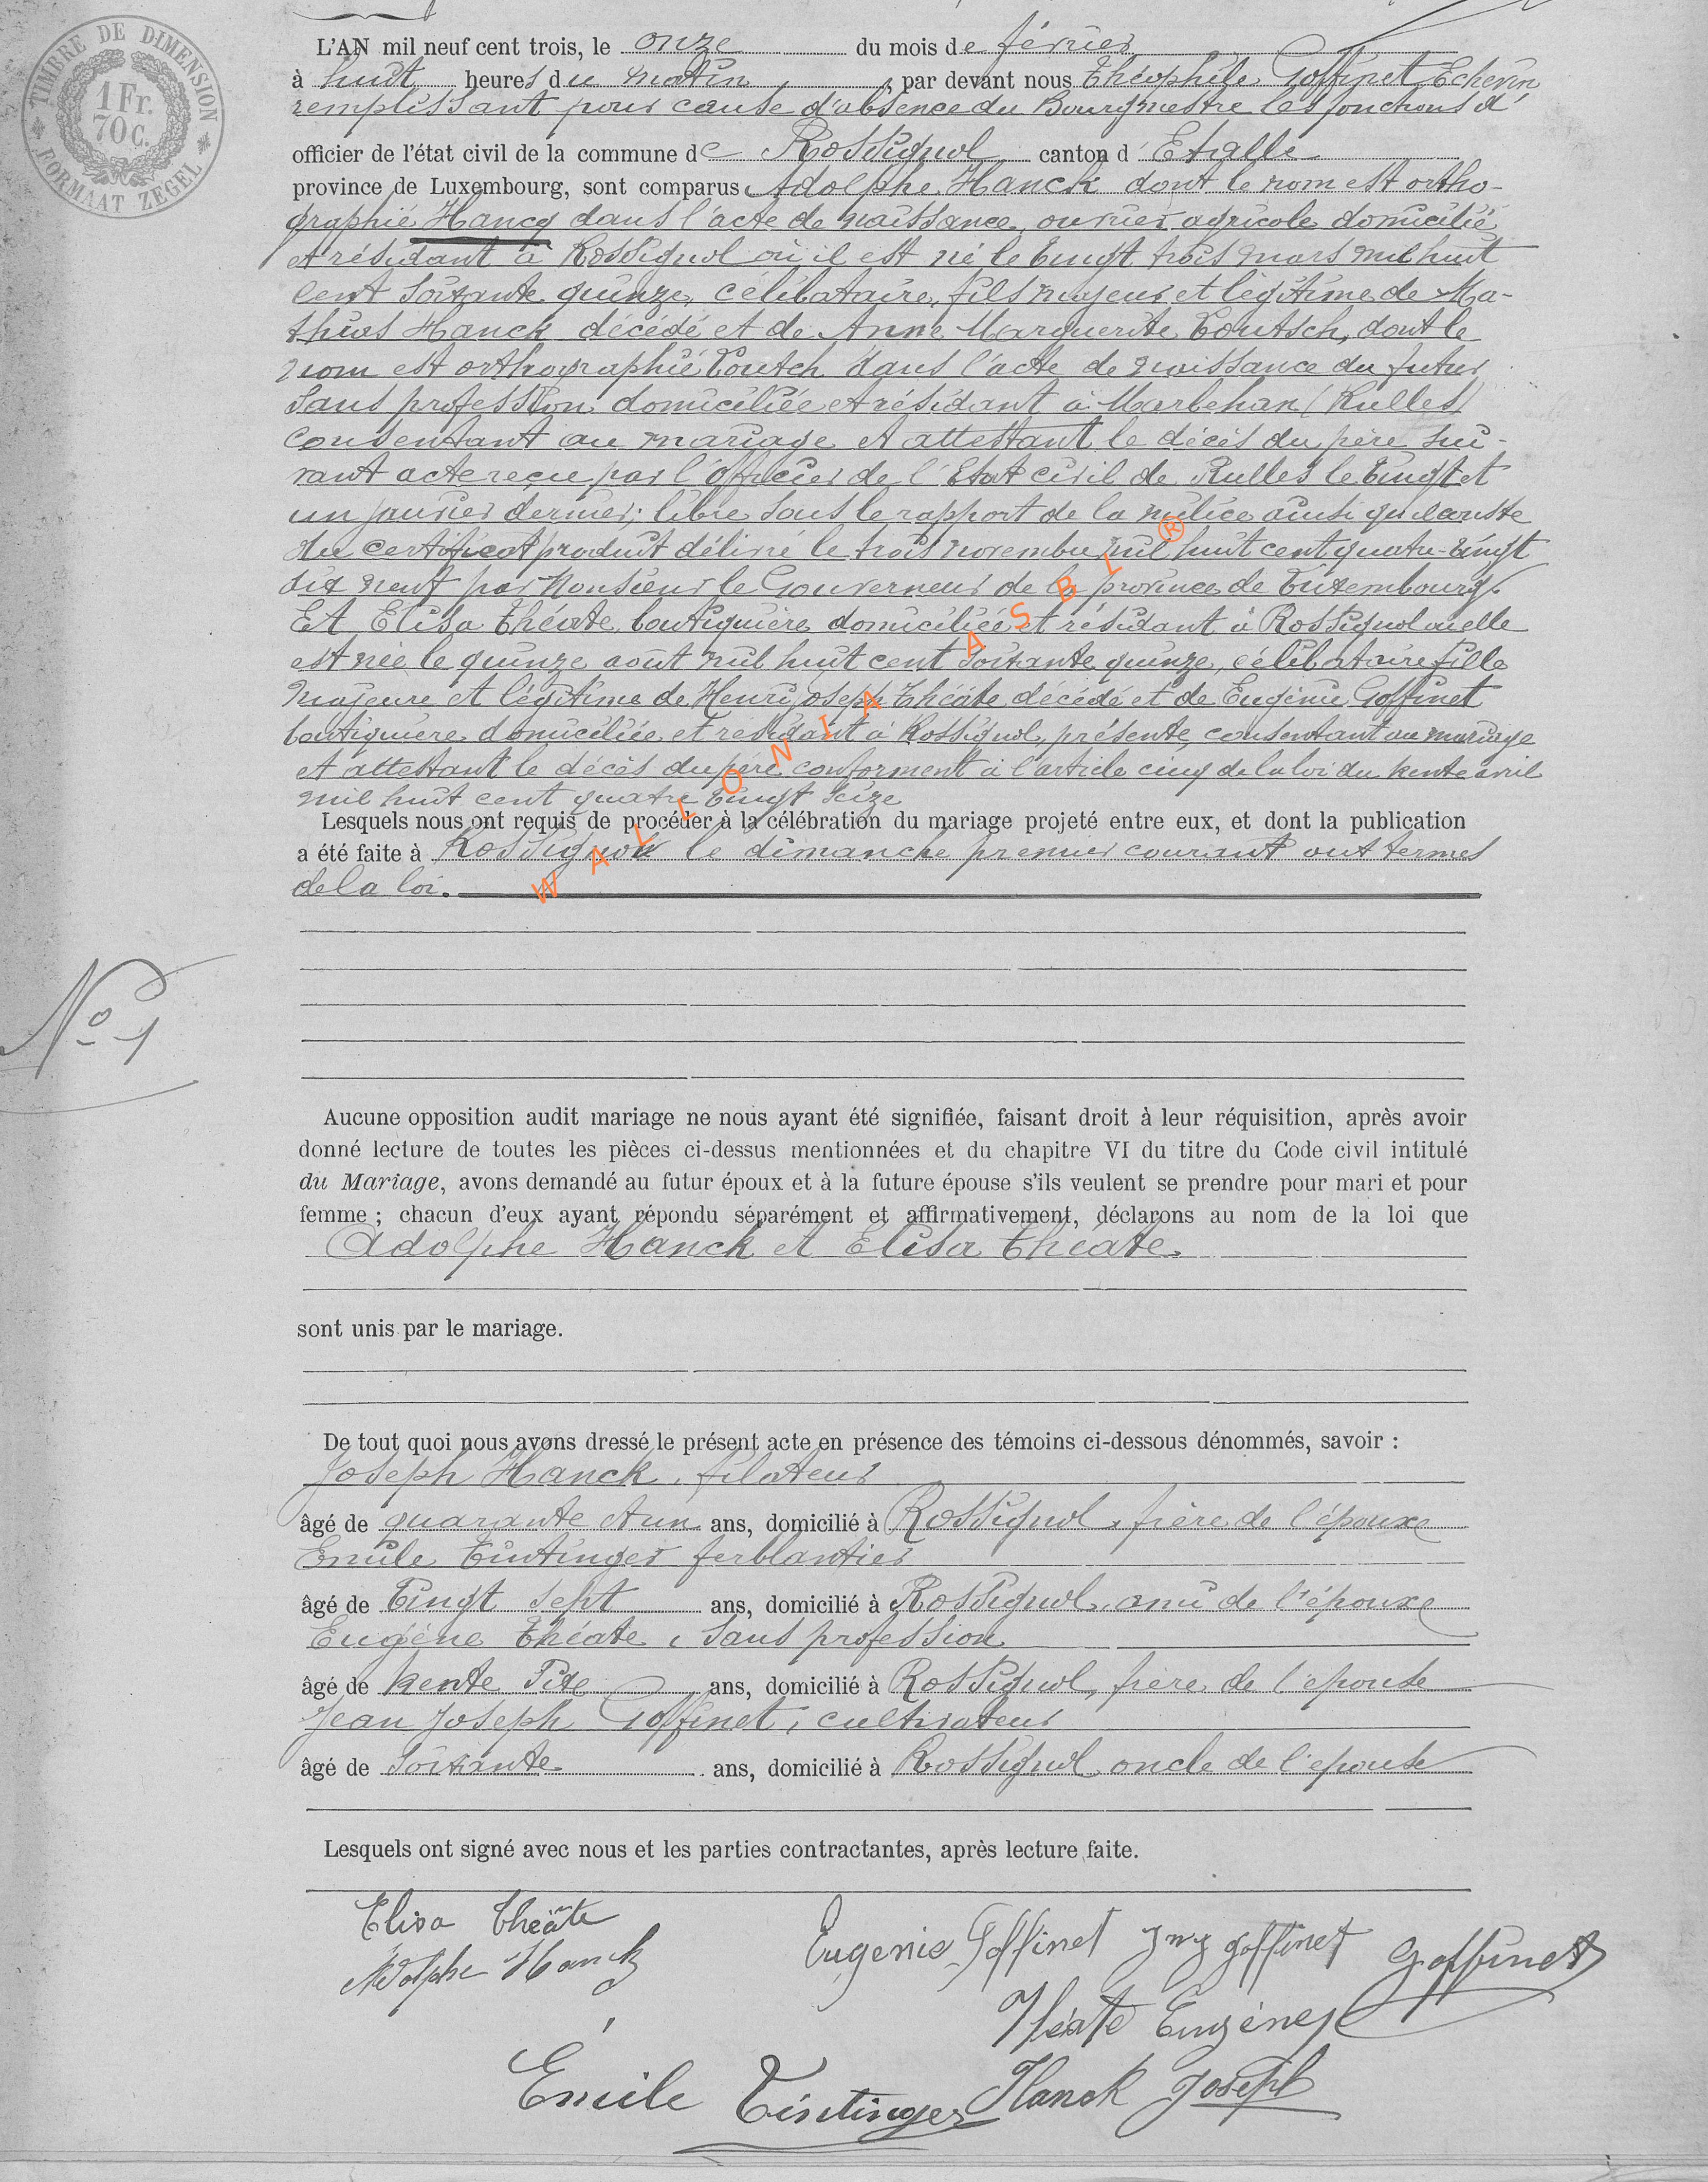 TIMBRE DE DIMENSION
1 Fr.
70 C.
FORMAAT ZEGEL
L'AN mil neuf cent trois, le onze du mois de février
à huit heures du matin, par devant nous Théophile Goffinet Echevin
remplissant pour cause d'absence du Bourgmestre les fonctions d'
officier de l'état civil de la commune de Rossignol canton d'Etalle
province de Luxembourg, sont comparus Adolphe Hanck dont le nom est ortho-
graphié Hancq dans l'acte de naissance, ouvrier agricole domicilié
et résidant à Rossignol où il est né le vingt trois mars mil huit
cent soixante quinze, célibataire, fils majeur et légitime de Ma-
thias Hanck décédé et de Anne Marguerite Toutsch, dont le
nom est orthographié Toutch dans l'acte de naissance du futur
sans profession domiciliée et résidant à Marbehan (Rulles)
consentant au mariage et attestant le décès du père sui-
vant acte reçu par l'officier de l'Etat civil de Rulles le vingt et
un janvier dernier; libre sous le rapport de la milice ainsi qu'il conste
du certificat produit délivré le trois novembre mil huit cent quatre-vingt
dix neuf par Monsieur le Gouverneur de la province de Luxembourg.
Et Elisa Théate, boutiquière domiciliée et résidant à Rossignol où elle
est née le quinze août mil huit cent soixante quinze, célibataire fille
majeure et légitime de Henri Joseph Théate décédé et de Eugénie Goffinet
boutiquière domiciliée et résidant à Rossignol, présente, consentant au mariage
et attestant le décès du père conforment à l'article cinq de la loi du trente avril
mil huit cent quatre vingt seize
Lesquels nous ont requis de procéder à la célébration du mariage projeté entre eux, et dont la publication
a été faite à Rossignol le dimanche premier courant aux termes
de la loi.
WALLONIA ASBL ®
No 1
Aucune opposition audit mariage ne nous ayant été signifiée, faisant droit à leur réquisition, après avoir
donné lecture de toutes les pièces ci-dessus mentionnées et du chapitre VI du titre du Code civil intitulé
du Mariage, avons demandé au futur époux et à la future épouse s'ils veulent se prendre pour mari et pour
femme ; chacun d'eux ayant répondu séparément et affirmativement, déclarons au nom de la loi que
Adolphe Hanck et Elisa Théate.
sont unis par le mariage.
De tout quoi nous avons dressé le présent acte en présence des témoins ci-dessous dénommés, savoir :
Joseph Hanck, filateur
âgé de quarante et un ans, domicilié à Rossignol, frère de l'époux
Emile Tintinger ferblantier
âgé de vingt sept ans, domicilié à Rossignol, ami de l'époux
Eugène Théate, sans profession
âgé de trente six ans, domicilié à Rossignol, frère de l'épouse
Jean Joseph Goffinet, cultivateur
âgé de soixante ans, domicilié à Rossignol oncle de l'épouse
Lesquels ont signé avec nous et les parties contractantes, après lecture faite.
Elisa Théâte
Adolphe Hanck
Eugenie Goffinet Goffinet Goffinet
Théate Eugène
Emile Tintinger Hanck Joseph